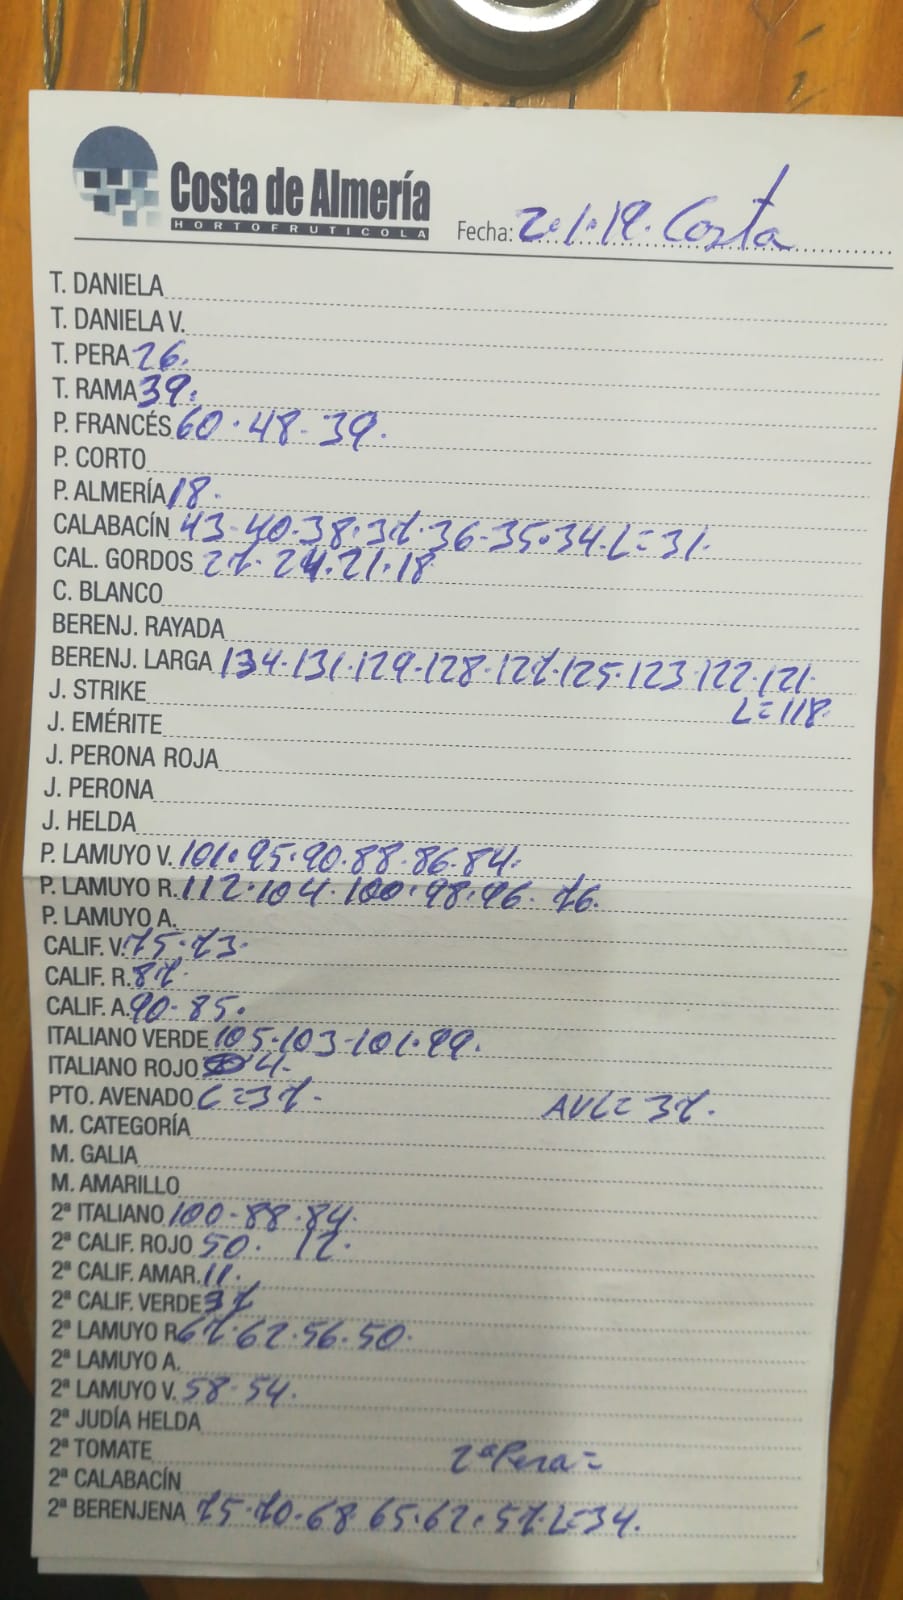 Costa de Almería
HORTOFRUTICOLA
Fecha: 2.1.19. Costa
T. DANIELA
T. DANIELA V.
T. PERA 26.
T. RAMA 39.
P. FRANCÉS 60.48-39.
P. CORTO
P. ALMERÍA 18.
CALABACÍN 43-40.38.37.36-35.34.L=31.
CAL. GORDOS 27.24.21.18
C. BLANCO
BERENJ. RAYADA
BERENJ. LARGA 134.131.129-128.127.125.123.122.121.
J. STRIKE L=118.
J. EMÉRITE
J. PERONA ROJA
J. PERONA
J. HELDA
P. LAMUYO V. 101.95.90.88-86.84.
P. LAMUYO R. 112.104.100.98.96. 76.
P. LAMUYO A.
CALIF. V. 75.73.
CALIF. R. 87.
CALIF. A. 90-85.
ITALIANO VERDE 105.103-101.99.
ITALIANO ROJO 4.
PTO. AVENADO C=37. AVL=37.
M. CATEGORÍA
M. GALIA
M. AMARILLO
2ª ITALIANO 100-88.84.
2ª CALIF. ROJO 50. 12.
2ª CALIF. AMAR. 11.
2ª CALIF. VERDE 37
2ª LAMUYO R 67.62.56.50.
2ª LAMUYO A.
2ª LAMUYO V. 58-54.
2ª JUDÍA HELDA
2ª TOMATE 2ª Pera=
2ª CALABACÍN
2ª BERENJENA 75.70.68 65.62.57.L=34.